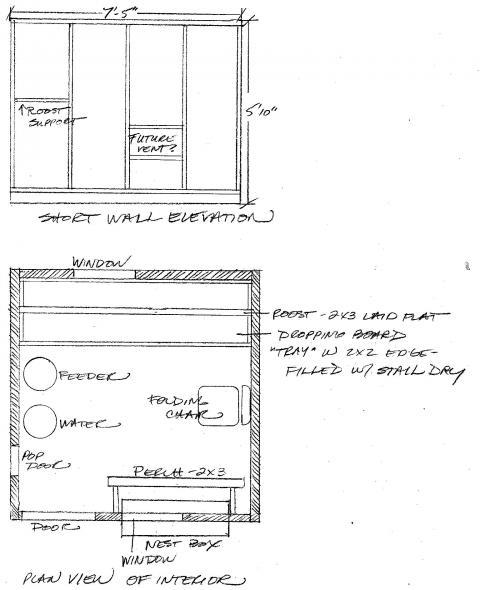 7'-5"
5'10"
↑ROOST
SUPPORT
FUTURE
VENT?
SHORT WALL ELEVATION
WINDOW
ROOST - 2X3 LAID FLAT
DROPPING BOARD
"TRAY" W 2X2 EDGE-
FILLED W/ STALL DRY
FEEDER
FOLDING
CHAIR
WATER
POP
DOOR
PERCH - 2X3
DOOR
NEST BOX
WINDOW
PLAN VIEW OF INTERIOR